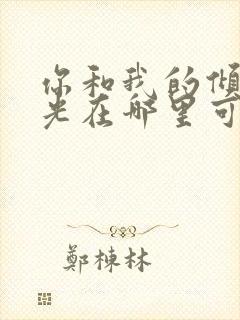 你和我的倾
光在哪里可
鄭棟林